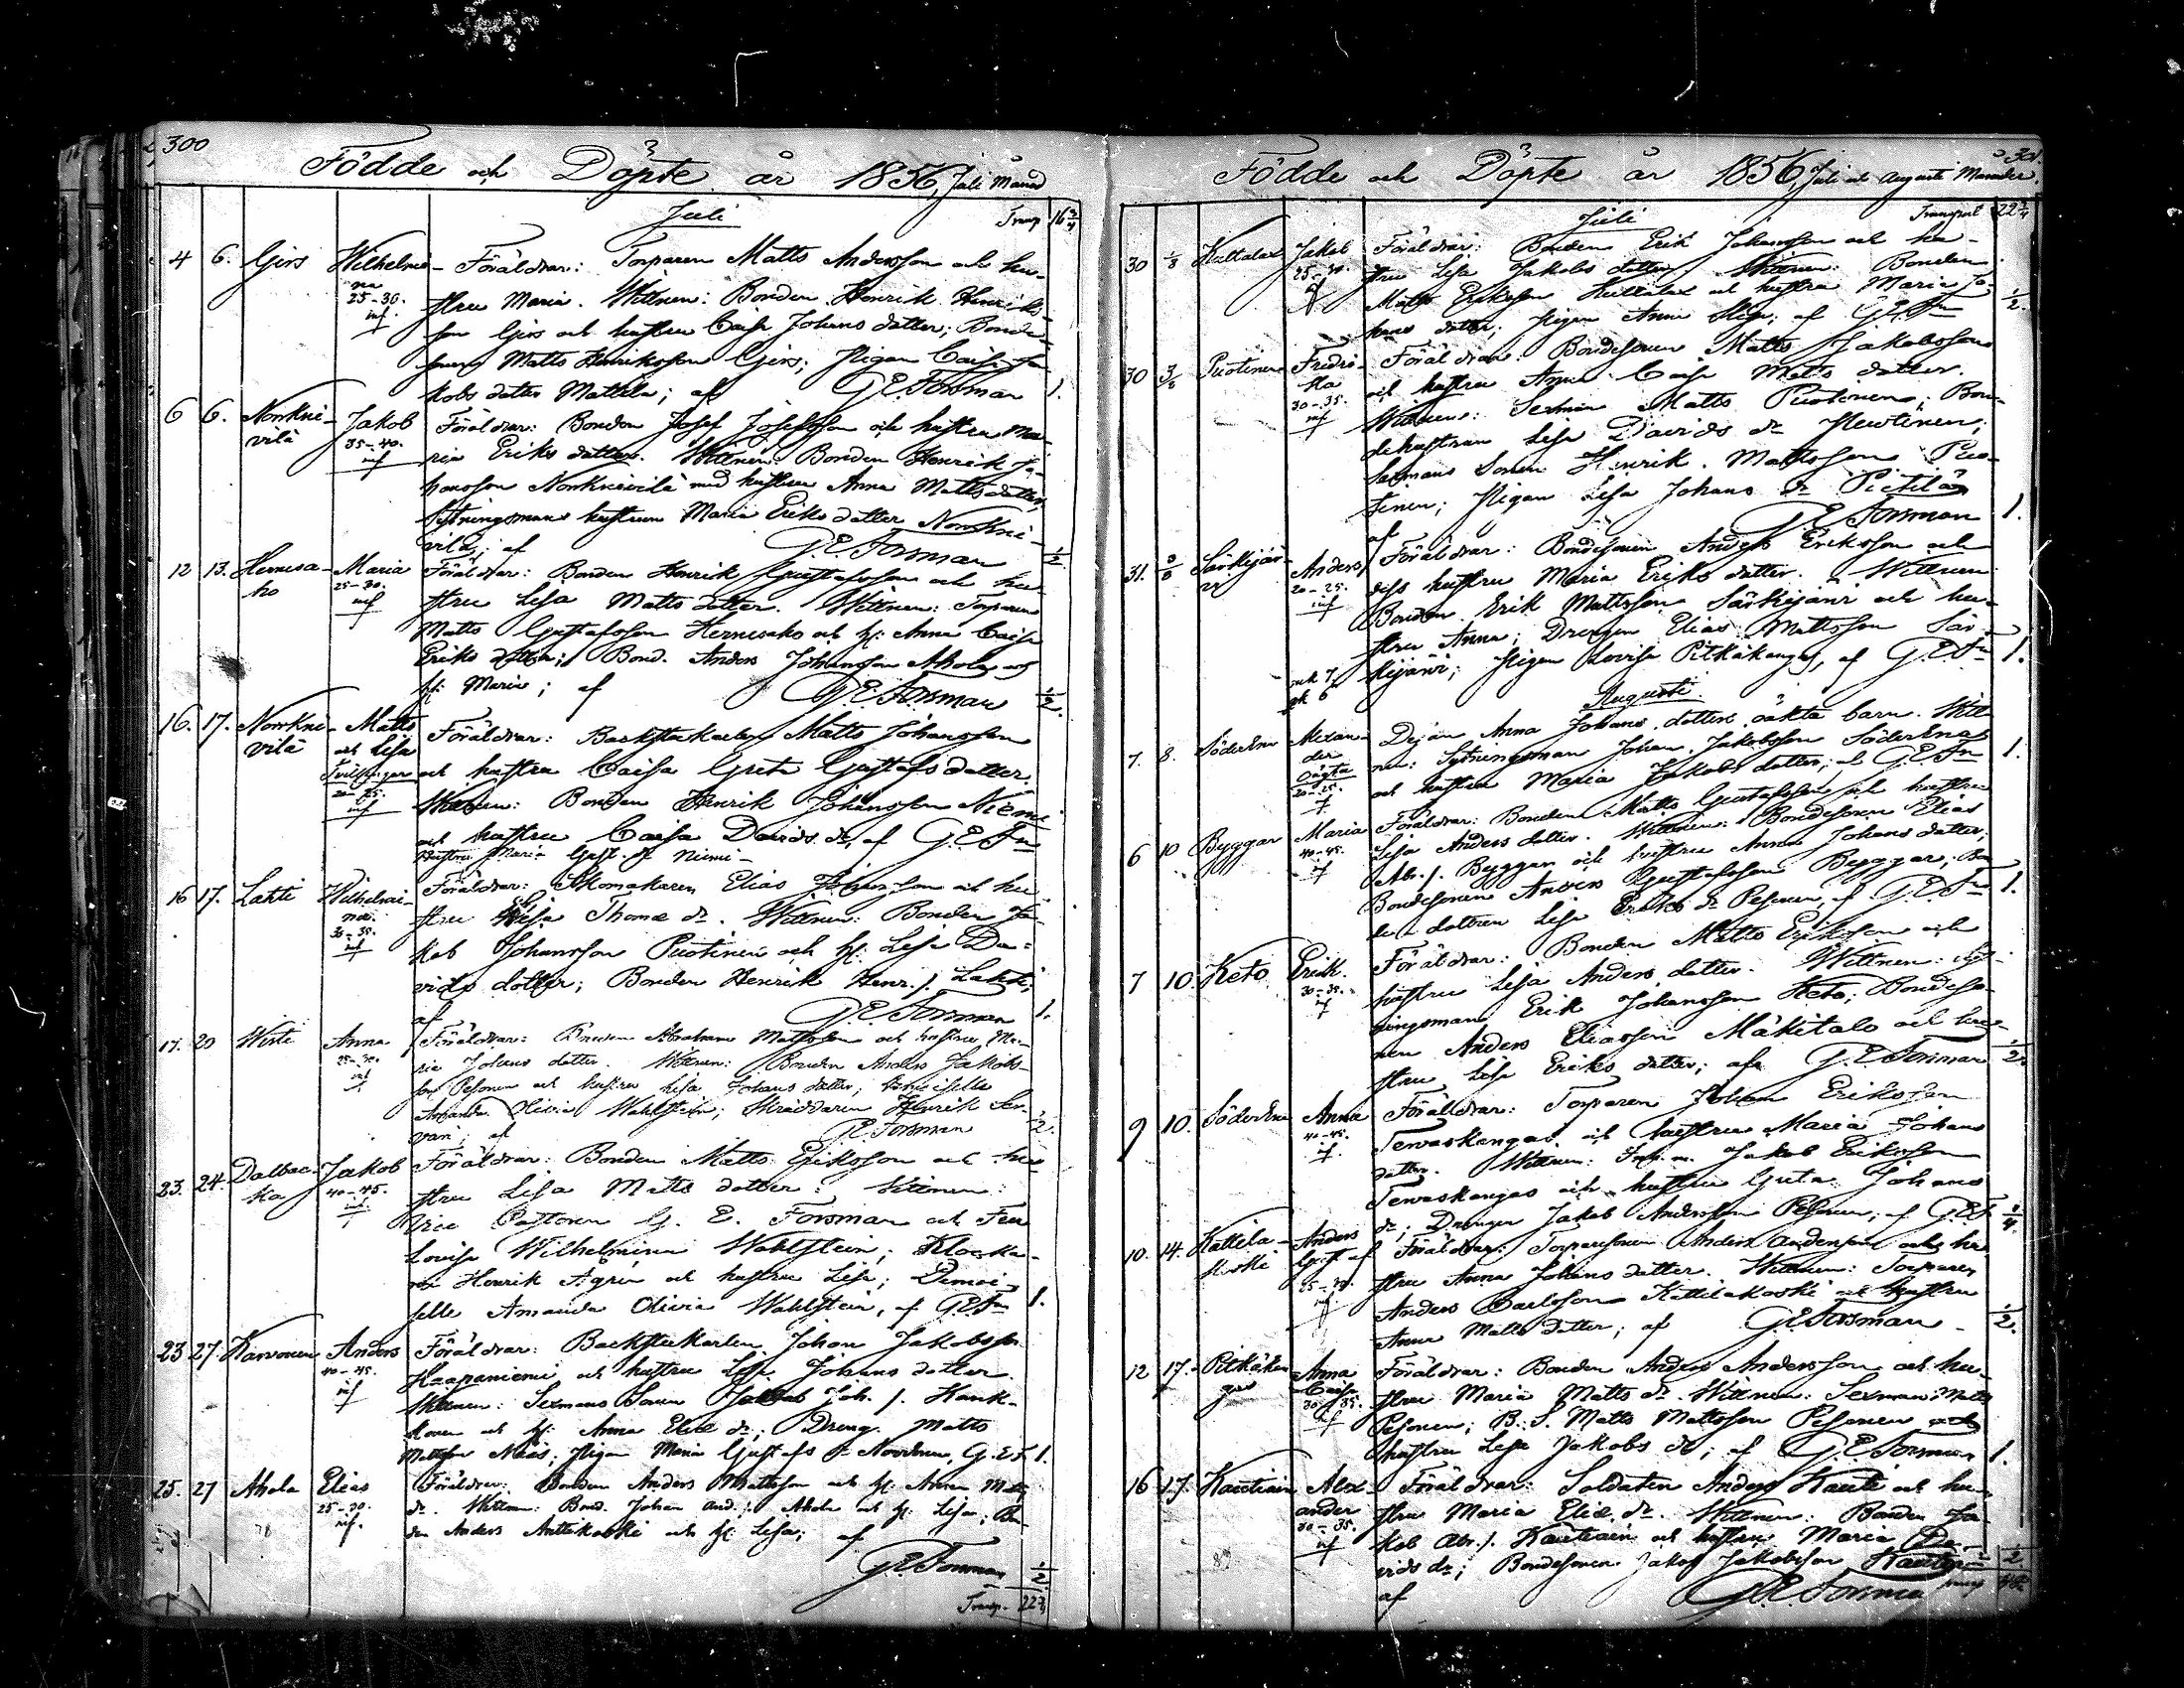 300
Födde och Döpte år 1856, Juli Månad
Juli
Transp 16 3/4
4 6. Girs Wilhelmi- Föräldrar: Torparen Matts Andersson och hu-
na
25-30. stru Maria. Wittnen: Bonden Henrik Henriks-
inf
son Girs och hustru Caisa Johans dotter; Bonde-
sonen Matts Henriksson Girs; Pigan Caisa Ja-
kobs dotter Mattila; af G.E. Forsman 1.
6 6. Norrkni- Jakob Föräldrar: Bonden Josef Josefsson och hustru Ma-
vilä 35-40. ria Eriks dotter. Wittnen: Bonden Henrik Jo-
inf
hansson Norrknivilä med hustru Anna Matts dotter,
Sytningsmans hustrun Maria Eriks dotter Norrkni-
vilä; af G.E. Forsman 1/2
12 13. Hernesa- Maria Föräldrar: Bonden Henrik Gustafsson och hu-
ho 25-30. stru Lisa Matts dotter. Wittnen: Torparen
inf
Matts Gustafsson Hernesaho och h: Anna Caisa
Eriks dotter; Bond. Anders Johansson Ahola och
h: Maria; af G.E. Forsman 1/2.
16. 17. Norrkni- Matts Föräldrar: Backstukarlen Matts Johansson
vilä och Lisa
Tvillingar och hustru Caisa Greta Gustafs dotter.
20-25.
inf Wittnen: Bonden Henrik Johansson Niemi
och hustru Caisa Davids dr, af G.E.Fn
Hustru Maria Gust. dr Niemi
16 17. Lahti Wilhelmi- Föräldrar: Skomakaren Elias Johansson och hu-
na. stru Lisa Thomæ dr. Wittnen: Bonden Ja-
30-35.
inf kob Johansson Puotinen och h: Lisa Da-
vids dotter; Bonden Henrik Henr. s. Lahti;
af G.E. Forsman 1.
17. 20 Wirte Anna Föräldrar: Bonden Abraham Mattsson och hustru Ma-
25-30. ria Johans dotter. Wittnen: Bonden Anders Jakobs-
inf
son Pesonen och hustru Lisa Johans dotter; Demoiselle
Amanda Olivia Wahlstein; Skräddaren Henrik Ser-
vari; af G.E. Forsman 1/2.
23. 24. Dalbac- Jakob Föräldrar: Bonden Matts Eriksson och hu-
ka 40-45. stru Lisa Matts dotter. Wittnen:
inf
Vice Pastoren G. E. Forsman och Fru
Lovisa Wilhelmina Wahlstein; Klocka-
ren Henrik Agrén och hustru Lisa; Demoi-
selle Amanda Olivia Wahlstein, af G.E.Fn 1.
23 27 Karvonen Anders Föräldrar: Backstukarlen Johan Jakobsson
40-45. Haapaniemi och hustru Lisa Johans dotter.
inf Wittnen: Sexmans Sonen Jakob Joh. s. Hauk-
konen och h: Anna Eliæ dr; Dreng. Matts
Mattsson Näs; Pigan Maria Gustafs dr, G.E.F. 1.
25. 27 Ahola Elias Föräldrar: Bonden Anders Mattsson och h: Anna Matts
25-30. dr. Wittnen: Bond. Johan And. s. Ahola och h: Lisa; Bon-
inf. den Anders Anttikoski och h: Lisa; af
G.E. Forsman 1/2
Transp. 22 3/4
301.
Födde och Döpte år 1856, Juli och Augusti Månader.
Juli
Transport 22 3/4
30 1/8 Huttalax Jakob Föräldrar: Bonden Erik Johansson och hu-
25-30. stru Lisa Jakobs dotter. Wittnen: Bonden
inf Matts Eriksson Huttalax och hustru Maria Jo- 1/2.
hans dotter; Pigan Anna Lisa; af G.E.Fn
30 3/8 Puotinen Fredri- Föräldrar: Bondesonen Matts Jakobsson
ka och hustru Anna Caisa Matts dotter.
30-35.
inf Wittnen: Sexman Matts Puotinen; Bon-
dehustrun Lisa Davids dr
Sexmans Sonen Henrik Mattsson Puo-
tinen; Pigan Lisa Johans dr Pietilä
af G.E. Forsman 1.
31. 3/8 Särkijär- Anders Föräldrar: Bondesonen Anders Eriksson och
vi 20-25. dess hustru Maria Eriks dotter. Wittnen
inf Bonden Erik Mattsson Särkijärvi och hu-
stru Anna; Drengen Elias Mattsson Sär-
kijärvi; Pigan Lovisa Pitkäkangas, af G.E.Fn 1.
mk 7
qk 6
Augusti.
7. 8. Söderena Alexan- Pigan Anna Johans dotters oäkta barn. Witt-
der nen: Sytningsman Johan Jakobsson Söderena
Oägta
20-25. och hustru Maria Jakobs dotter; af G.E.Fn 1.
6 10 Byggar Maria Föräldrar: Bonden Matts Gustafsson och hustru
40-45. Lisa Anders dotter. Wittnen: Bondesonen Elias
inf Abr. s. Byggar och hustru Anna Johans dotter;
Bondesonen Anders Gustafsson Byggar; Bon-
de dottren Lisa Eriks dr Pesonen, af G.E.Fn 1.
7 10. Keto Erik. Föräldrar: Bonden Matts Eriksson och
30-35. hustru Lisa Anders dotter. Wittnen: Syt-
inf ningsman Erik Johansson Keto; Bondeso-
nen Anders Eliasson Mäkitalo och hu-
stru Lisa Eriks dotter; af G.E. Forsman 1/2
9 10. Söderena Anna Föräldrar: Torparen Johan Eriksson
40-45. Tervaskangas och hustru Maria Johans
inf. dotter. Wittnen: Jakob Eriksson
Tervaskangas och hustru Greta Johans
dr; Drengen Jakob Andersson Pesonen; af G.E.F 3/4.
10. 14. Kattila- Anders Föräldrar: Torparesonen Anders Andersson och hu-
koski 25-30. stru Anna Johans dotter. Wittnen: Torparen
inf Anders Carlsson Kattilakoski och hustru
Anna Matts dotter; af G.E. Forsman 1/2.
12 17. Pitkäkan- Anna Föräldrar: Bonden Anders Andersson och hu-
gas Caisa stru Maria Matts dr. Wittnen: Sexman Matts
30-35.
inf Pesonen; B. S. Matts Mattsson Pesonen och
hustru Lisa Jakobs dr; af G.E. Forsman 1.
16 17. Kautiain Alex- Föräldrar: Soldaten Anders Kauti och hu-
ander stru Maria Eliæ dr. Wittnen: Bonden Ja-
30-35. kob Abr. s. Kautiain och hustru Maria Da-
inf vids dr; Bondesonen Jakob Jakobsson Kautiain 1/2
af G.E. Forsman